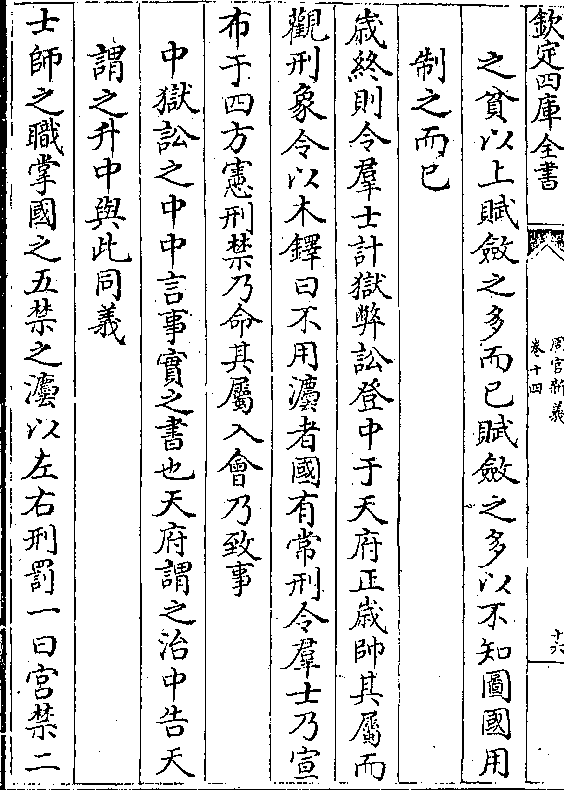 欽定四庫全書
周官新義
卷十四
十六
之貧以上賦斂之多而已賦斂之多以不知圖國用
制之而已
歲終則令羣士計獄弊訟登中于天府正歲帥其屬而
觀刑象令以木鐸曰不用灋者國有常刑令羣士乃宣
布于四方憲刑禁乃命其屬入會乃致事
中獄訟之中中言事實之書也天府謂之治中告天
謂之升中與此同義
士師之職掌國之五禁之灋以左右刑罰一曰宮禁二